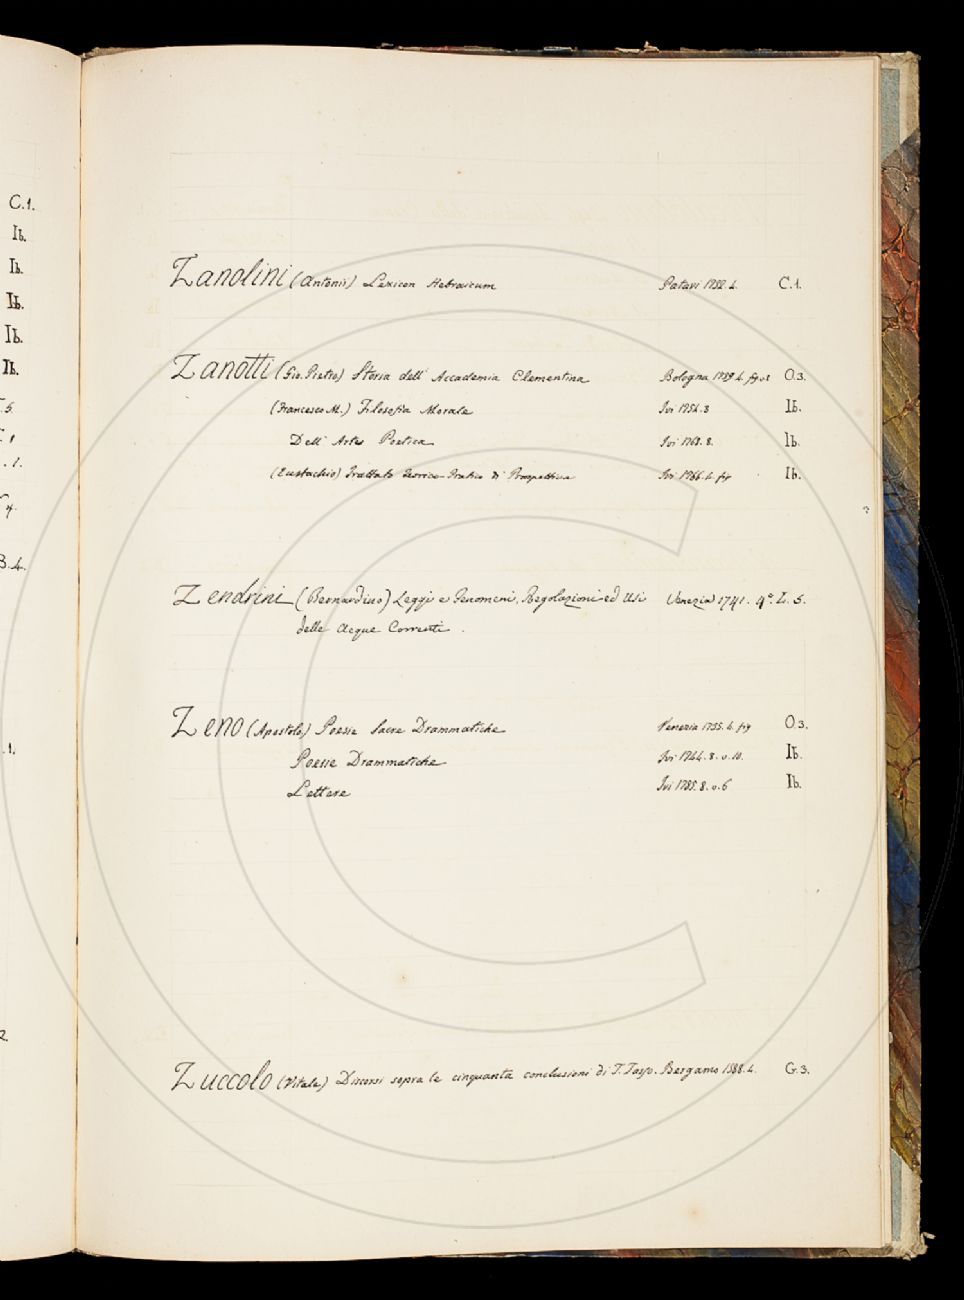 C.1.
Ib.
Ib.
Ib.
Ib.
Ib.
B.4.
Zanolini (Antonii) Lexicon Hebraicum Patavi 1732. 4. C.1.
Zanotti (Gio. Pietro) Storia dell' Accademia Clementina Bologna 1739. 4. fig. O.3.
(Francesco M.) Filosofia Morale Ivi 1754. 8 Ib.
Dell' Arte Poetica Ivi 1768. 8. Ib.
(Eustachio) Trattato Teorico-Pratico di Prospettiva Ivi 1766. 4. fig Ib.
Zendrini (Bernardino) Leggi e Fenomeni, Regolazioni ed Usi Venezia 1741. 4º. Z. 5.
delle Acque Correnti.
Zeno (Apostolo) Poesie Sacre Drammatiche Venezia 1735. 4. fig O.3.
Poesie Drammatiche Ivi 1744. 8. v. 10. Ib.
Lettere Ivi 1785. 8. v. 6 Ib.
Zuccolo (Vitale) Discorsi sopra le cinquanta conclusioni di T. Tasso. Bergamo 1588. 4. G.3.